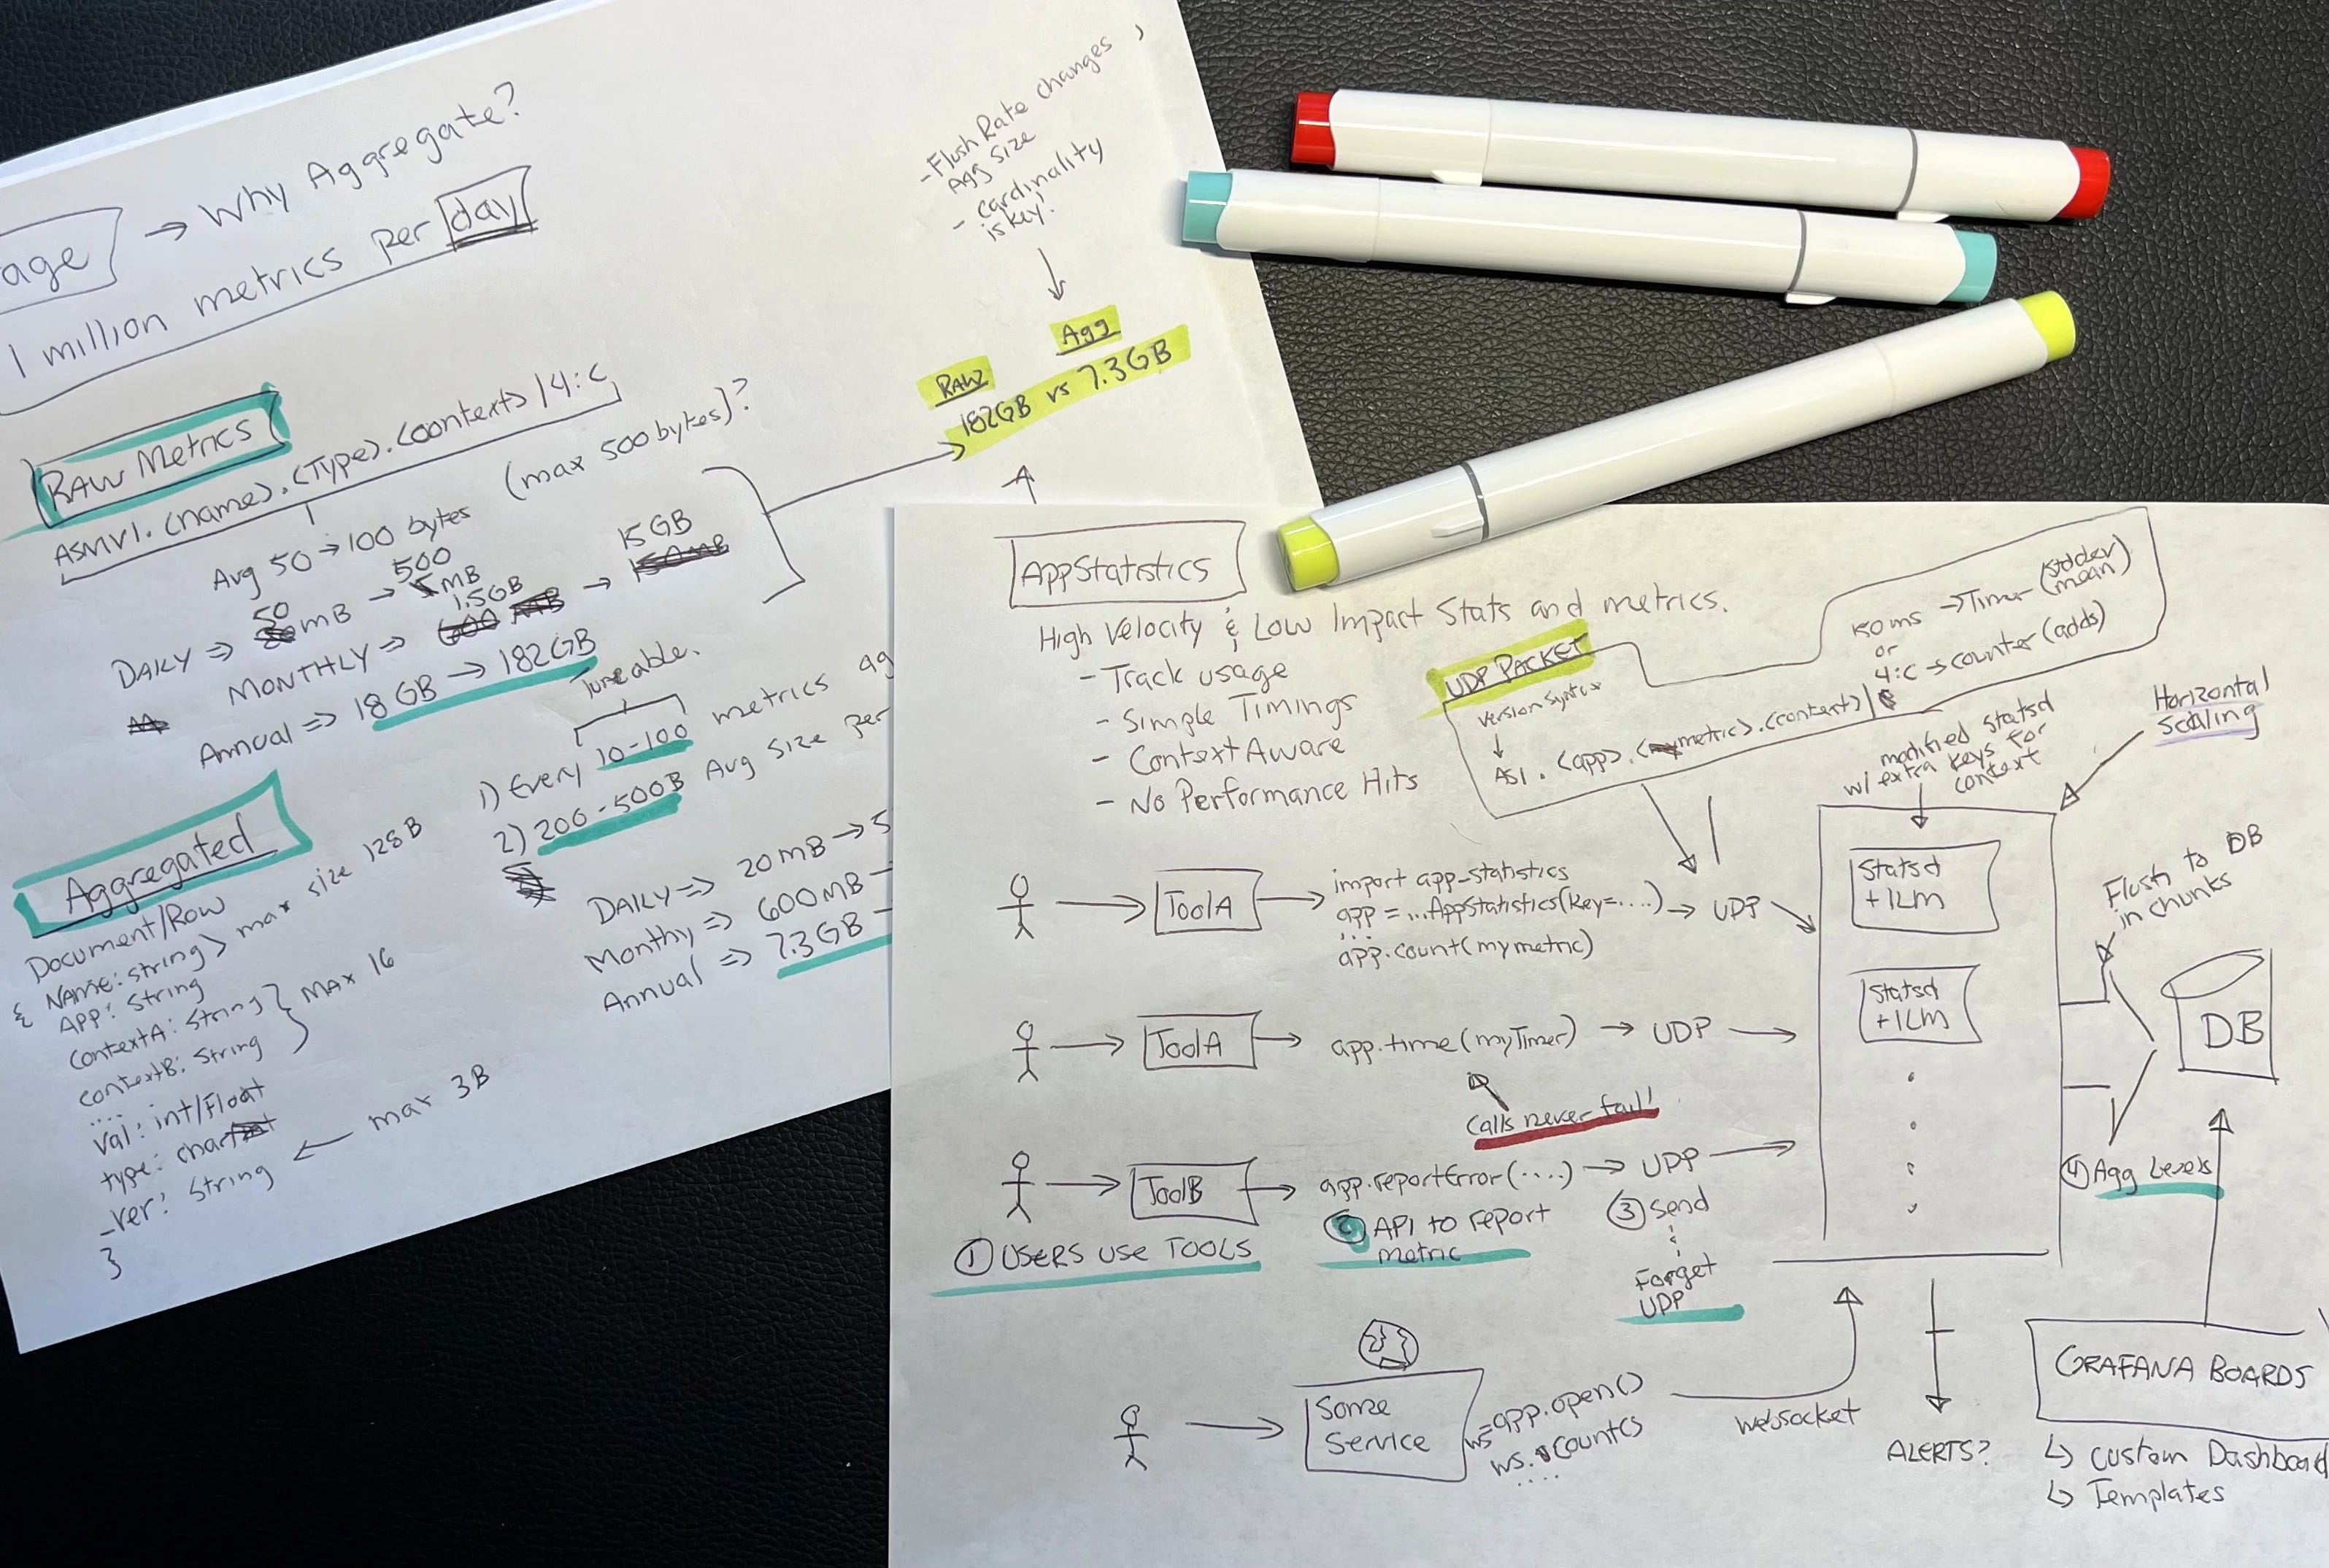 age → Why Aggregate?
1 million metrics per day
- Flush Rate changes
Agg size
- cardinality
is key.
Raw Agg
182GB vs 7.3GB
RAW Metrics
ASMV1.(name).(Type).(context)|4:c
Avg 50 → 100 bytes (max 500 bytes)?
DAILY => 50 mB → 500 mB
MONTHLY => 1.5GB → 15GB
Annual => 18 GB → 182GB
Tuneable.
1) Every 10-100 metrics ag
2) 200-500B Avg size per
DAILY => 20mB → 5
Monthy => 600mB -
Annual => 7.3GB -
Aggregated
Document/Row
{ Name: string > max size 128B
App: String
ContextA: String } MAX 16
ContextB: String
...
Val: int/Float
type: char
_ver: String ← max 3B
}
AppStatistics
High Velocity & Low Impact Stats and metrics.
- Track usage
- Simple Timings
- Context Aware
- No Performance Hits
UDP PACKET
Version Syntax
AS1.(app).(metric).(context)|
150ms → Timer (stddev
mean)
or
4:c → counter (adds)
modified statsd
w/ extra keys for
context
Horizontal
Scaling
ToolA → import app_statistics
app = ...AppStatistics(key=....) → UDP
...
app.count(mymetric)
ToolA → app.time(myTimer) → UDP
Calls never fail!
ToolB → app.reportError(....) → UDP
① USERS USE TOOLS
② API to report
metric
③ Send
Forget
UDP
Statsd
+ILM
Statsd
+ILM
Flush to DB
in chunks
DB
④ Agg Levels
Some
Service
ws=app.open()
ws.count(s
....
websocket
ALERTS?
GRAFANA BOARDS
↳ Custom Dashboard
↳ Templates